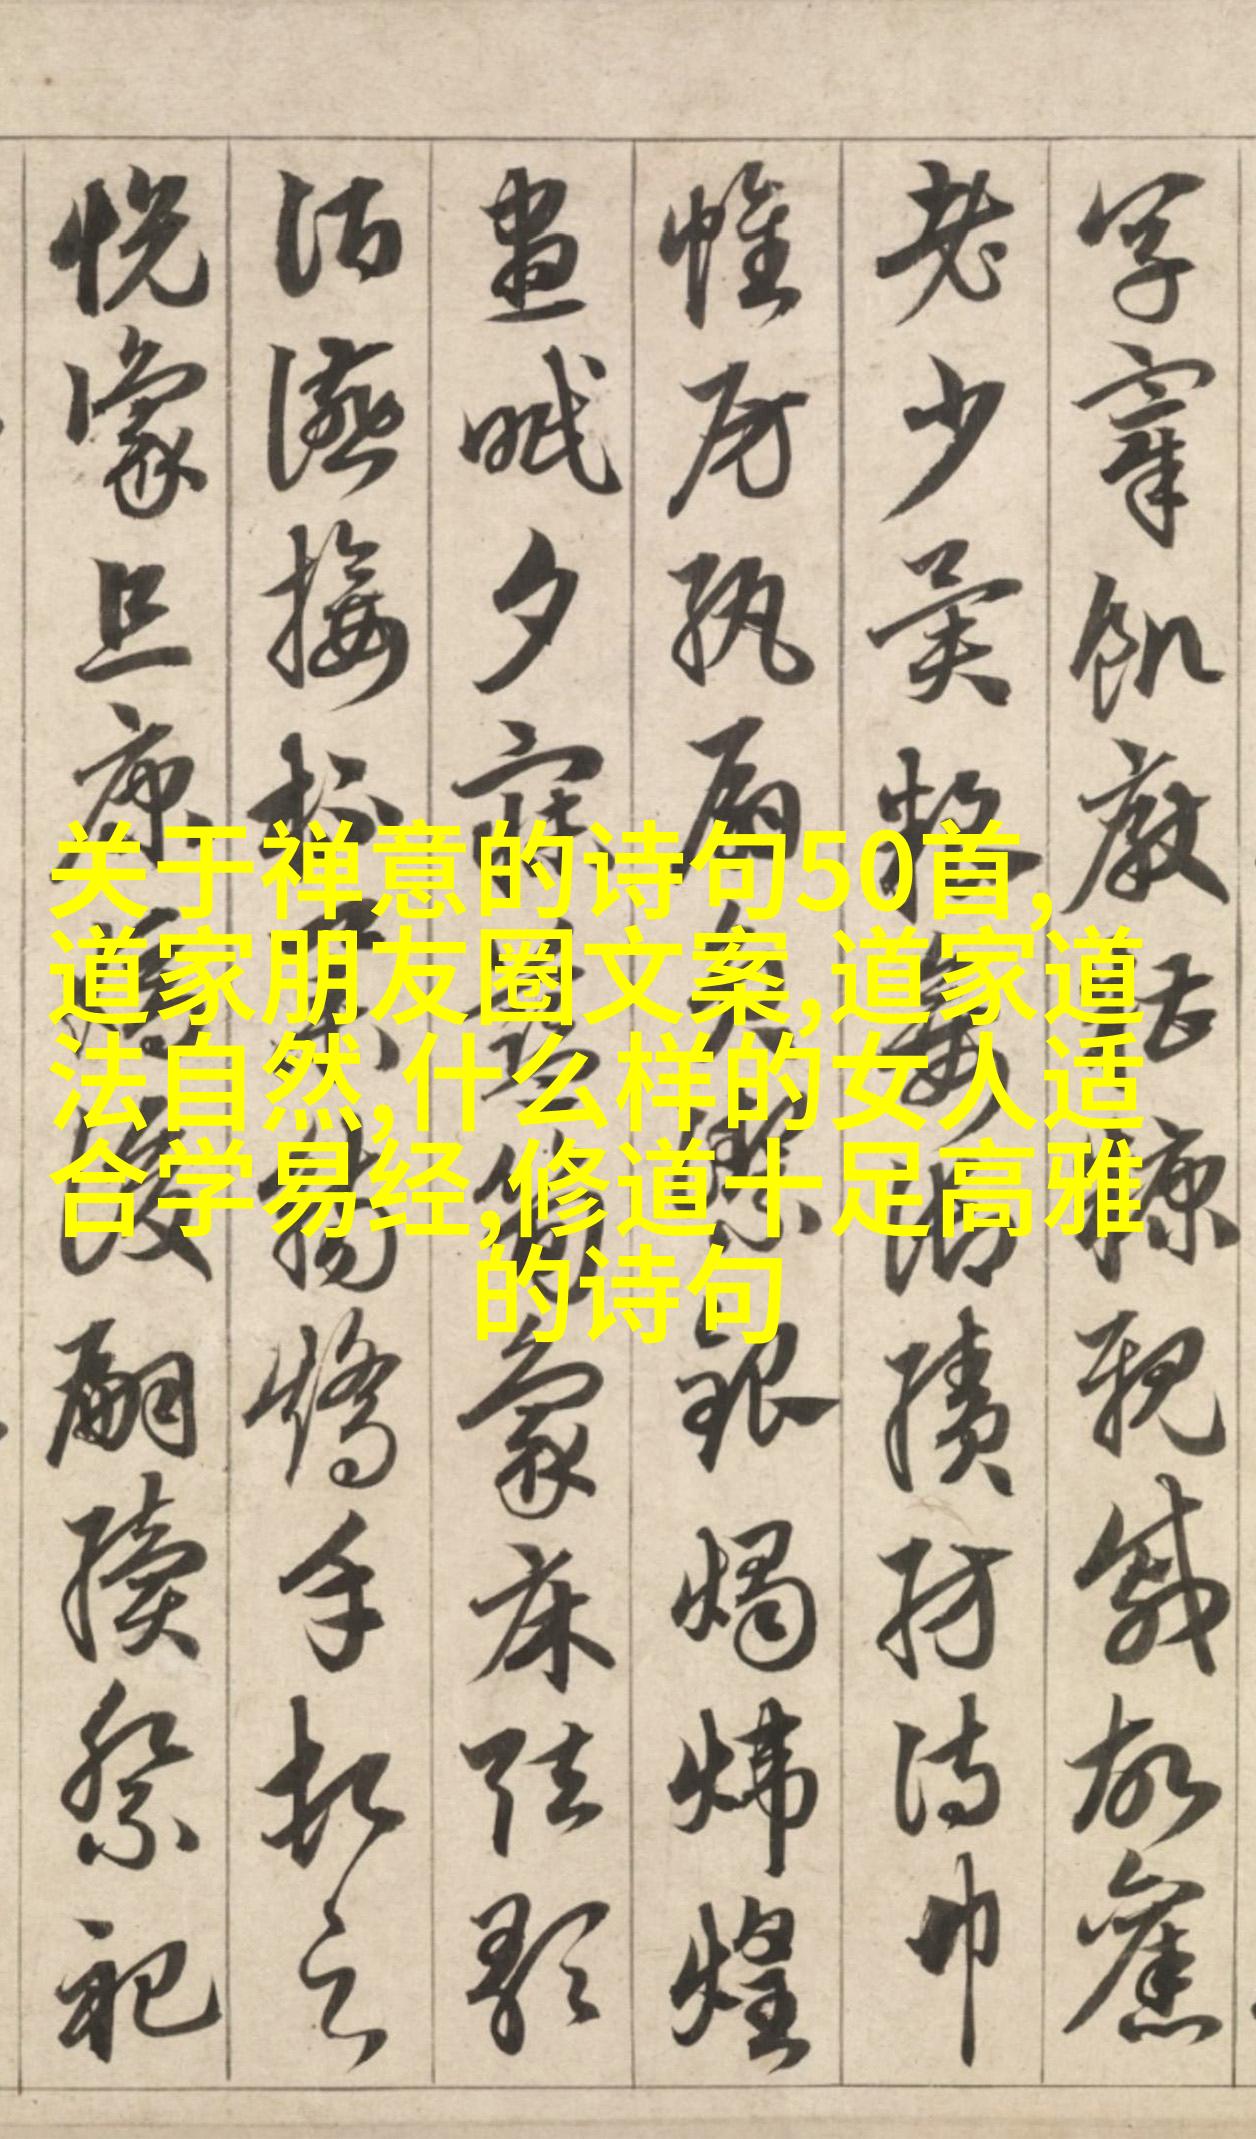 关于禅意的诗句50首,
道家朋友圈文案,道家道
法自然,什么样的女人适
合学易经,修道十足高雅
的诗句
宰飢厭糟糠親戚故舊
老少異糧妾御績紡侍巾
帷房紈扇圓潔銀燭煒煌
晝眠夕寐藍笋象床弦歌
酒讌接杯舉觴矯手頓足
悅豫且康嫡後嗣續祭祀